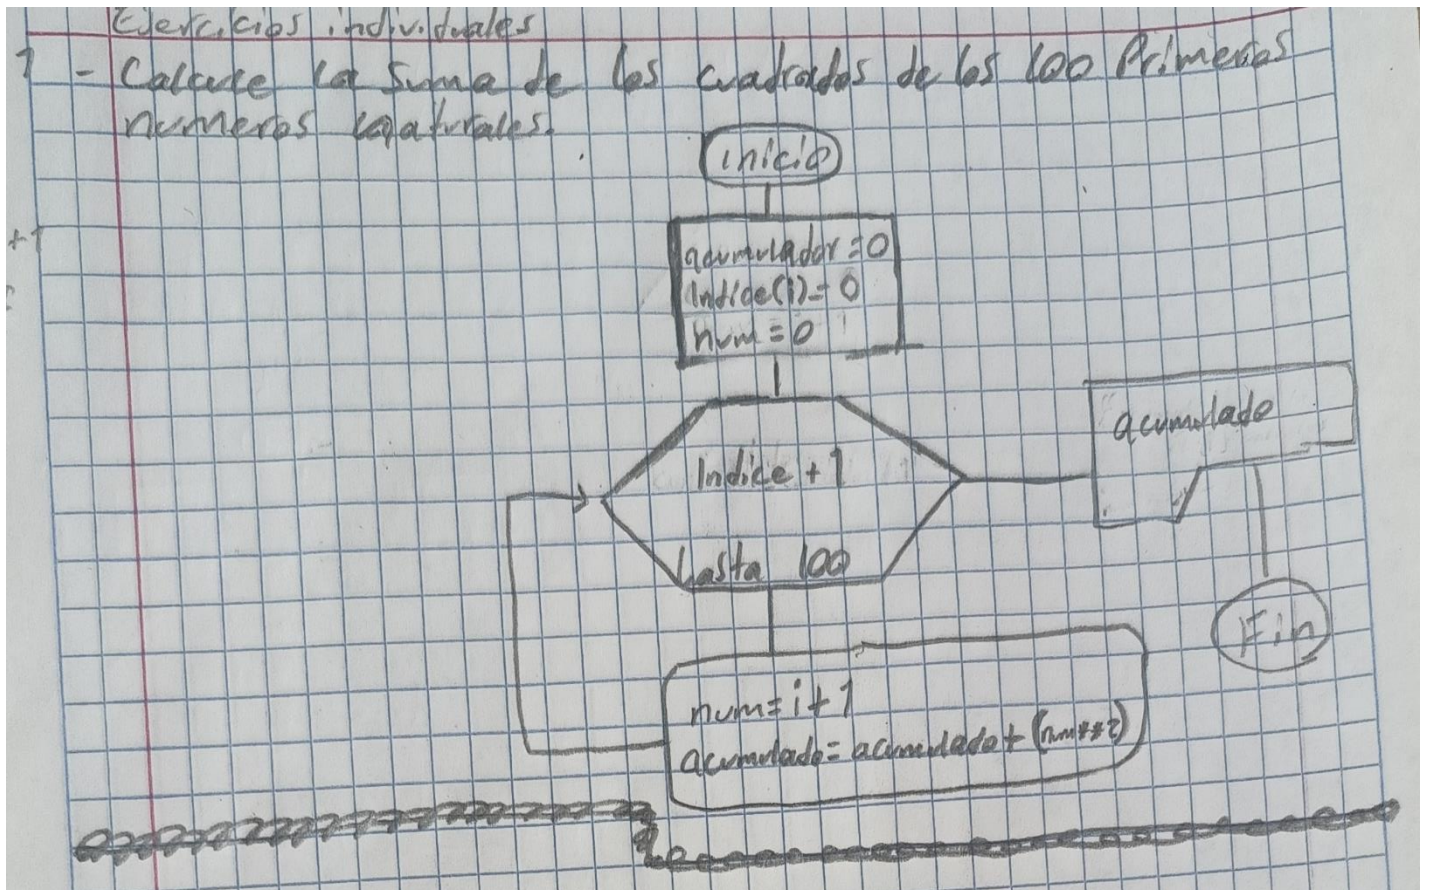 Ejercicios individuales
1 - Calcule la suma de los cuadrados de los 100 Primeros
numeros naturales.
+1
inicio
acumulador = 0
indice(i) = 0
num = 0
Indice + 1
hasta 100
acumulado
Fin
num = i + 1
acumulado = acumulado + (num**2)